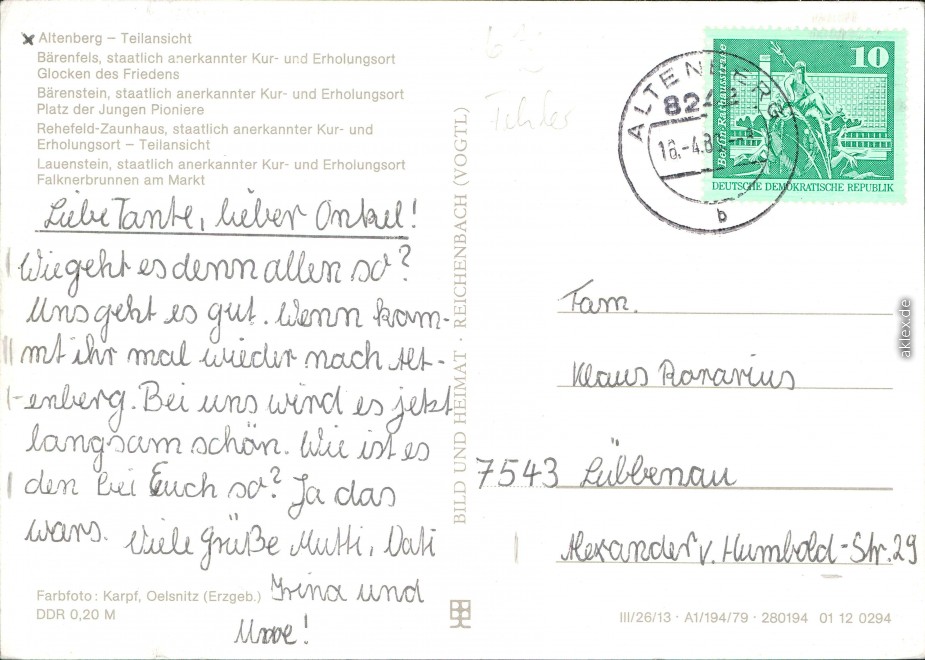 x Altenberg – Teilansicht
Bärenfels, staatlich anerkannter Kur- und Erholungsort
Glocken des Friedens
Bärenstein, staatlich anerkannter Kur- und Erholungsort
Platz der Jungen Pioniere
Rehefeld-Zaunhaus, staatlich anerkannter Kur- und
Erholungsort – Teilansicht
Lauenstein, staatlich anerkannter Kur- und Erholungsort
Falknerbrunnen am Markt
Liebe Tante, lieber Onkel!
Wie geht es denn allen so?
Uns geht es gut. Wenn kom-
mt ihr mal wieder nach Alt-
enberg. Bei uns wird es jetzt
langsam schön. Wie ist es
den bei Euch so? Ja das
wars. Viele Grüße Mutti, Vati
Irina und
Uwe!
Farbfoto: Karpf, Oelsnitz (Erzgeb.)
DDR 0,20 M
BILD UND HEIMAT · REICHENBACH (VOGTL)
ALTENBERG
8242
18.-4.80
b
10
Berlin-Rathausstraße
DEUTSCHE DEMOKRATISCHE REPUBLIK
Fam.
Klaus
7543 Lübbenau
Alexander v. Humbold-Str. 29
III/26/13 · A1/194/79 · 280194 01 12 0294
aklex.de